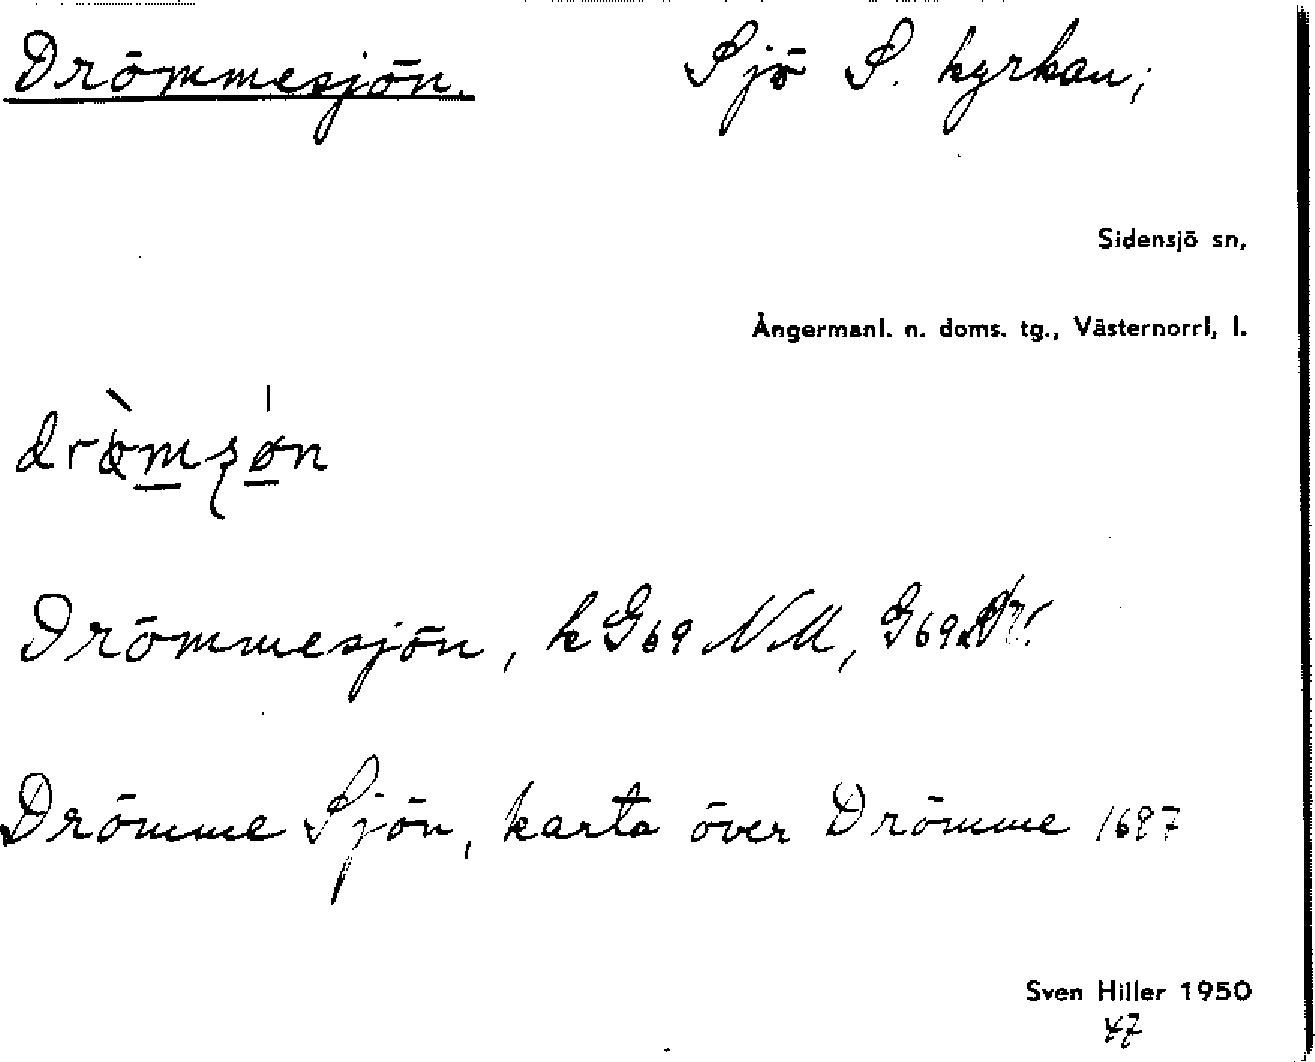 Drömmesjön. Sjö S. kyrkan;
Sidensjö sn,
Ångermanl. n. doms. tg., Västernorrl, l.
Drömmesjön, kG69 NM, G69
Drömme Sjön, karta över Drömme 1687
Sven Hiller 1950
47